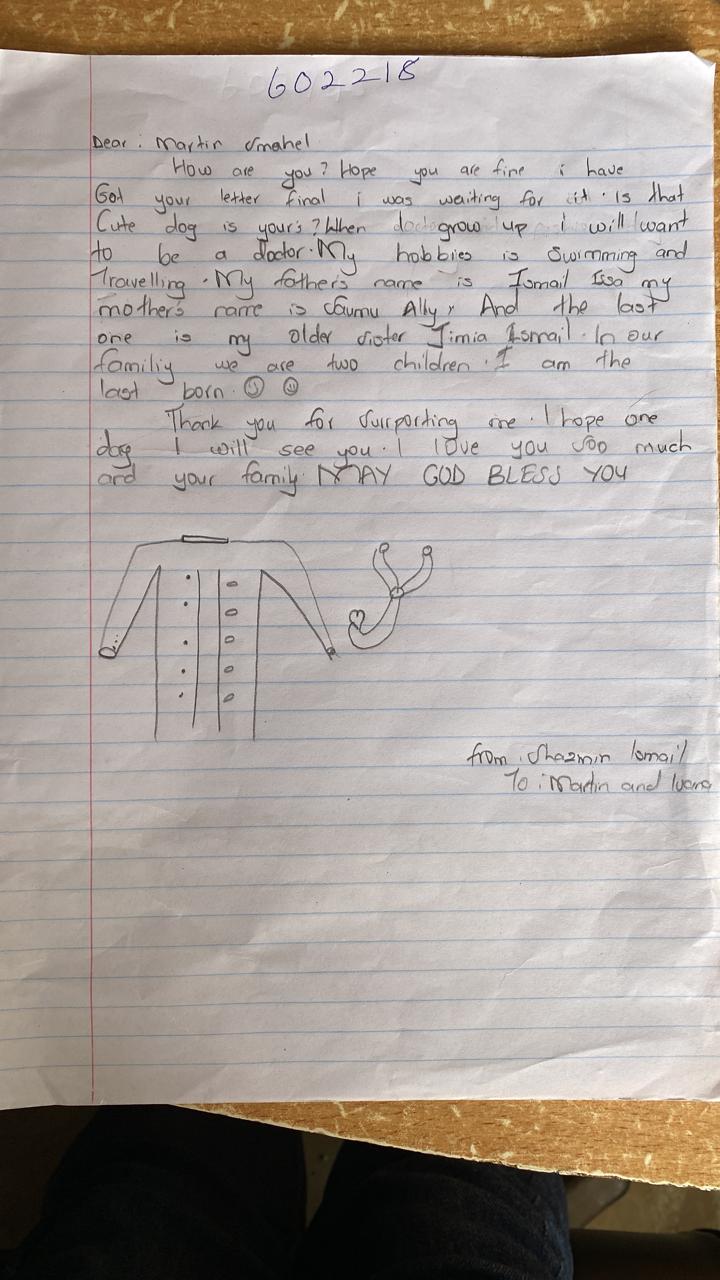 602218
Dear : Martin Smahel
How are you? Hope you are fine i have
Got your letter final i was waiting for it. Is that
Cute dog is your's? When grow up i will want
to be a doctor. My hobbies is Swimming and
Travelling. My father's name is Ismail Issa my
mother's name is Saumu Ally, And the last
one is my older sister Jimia Ismail. In our
familiy we are two children. I am the
last born. ☺ ☺
Thank you for surrporting me. I hope one
day I will see you. I love you soo much
and your family. MAY GOD BLESS YOU
from : Shazmin Ismail
To : Martin and Ivana